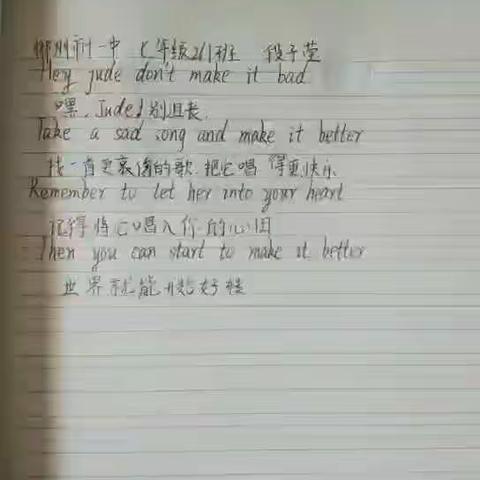 柳州市一中 七年级2611班 段子莹
Hey jude don't make it bad
嘿, Jude! 别沮丧,
Take a sad song and make it better
找一首更哀伤的歌, 把它唱得更快乐
Remember to let her into your heart
记得将它唱入你的心田
Then you can start to make it better
世界就能开始好转